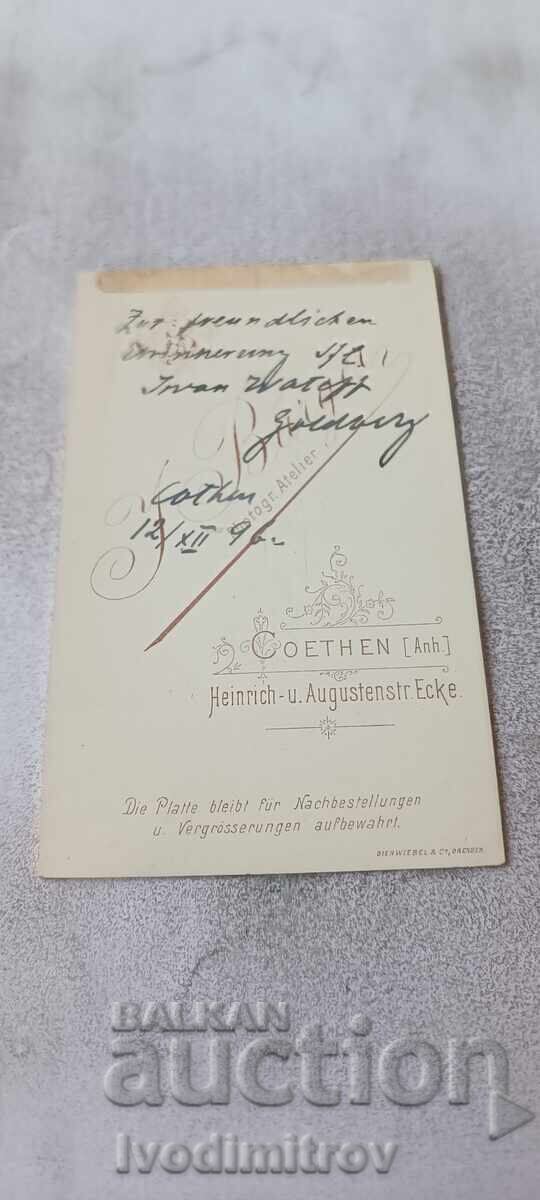 Zur freundlichen
Erinnerung
Iwan Watoff
Goldberg
Cöthen
12/XII 96.
Photogr. Atelier
COETHEN [Anh.]
Heinrich- u. Augustenstr. Ecke.
Die Platte bleibt für Nachbestellungen
u. Vergrösserungen aufbewahrt.
DIENWIEBEL & Co, DRESDEN.
BALKAN
auction
Ivodimitrov